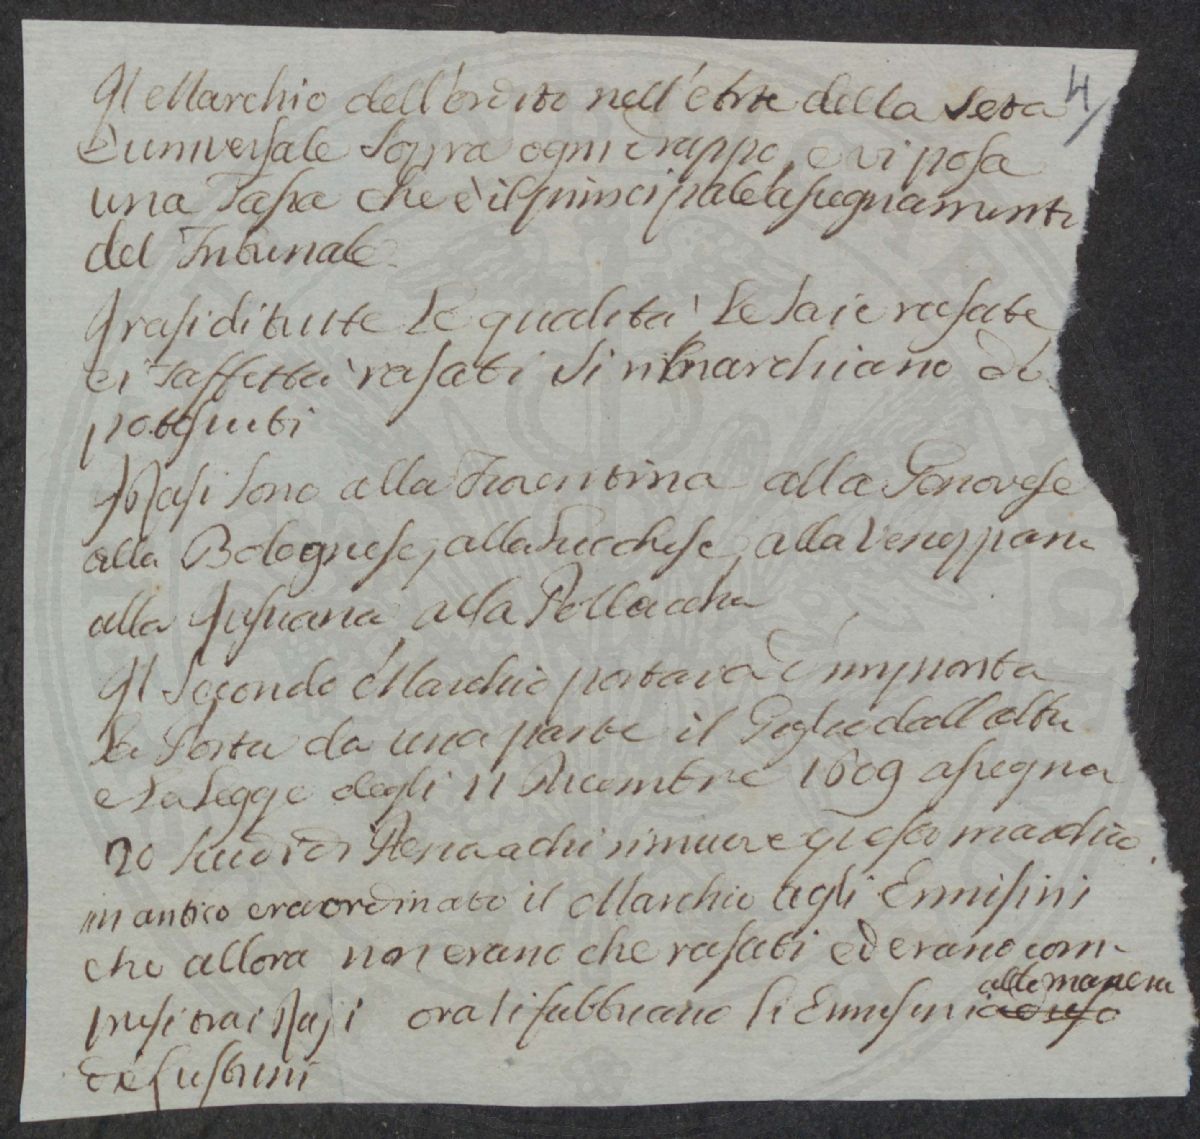 4
Il Marchio dell'ordito nell'Arte della Seta
è universale sopra ogni drappo, e vi posa
una Tassa che è il principale assegnamento
del Tribunale.
I rasi di tutte le qualità, le saie rasate
ei Taffettà rasati si rimarchiano do
po tessuti
I Rasi sono alla Fiorentina alla Genovese
alla Bolognese, alla Lucchese, alla Veneziana
alla alla Pollacca
Il Secondo Marchio portava d'impronta
la Porta da una parte il Giglio dall'altra
e la Legge degli 11 Dicembre 1609 assegna
20 scudi di Pena a chi rimuove questo marchio.
in antico era ordinato il Marchio agli Ermisini
che allora non erano che rasati ed erano com
presi trai Rasi ora si fabbricano li Ermisini ad uso alla maniera
de Lustrini